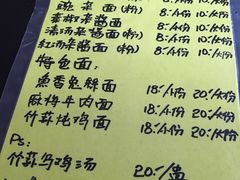 豌杂面(粉) 8:/小份 10:/大份
番椒杂酱面 8:/小份 10:/大份
清汤杂酱面(粉) 8:/小份 10:/大份
红汤杂酱面(粉) 8:/小份 10:/大份
特色面:
鱼香兔鲜面 18:/小份 20:/大份
麻辣牛肉面 18:/小份 20:/大份
竹荪炖鸡面 18:/小份 20:/大份
Ps:
竹荪乌鸡汤 20:/盅